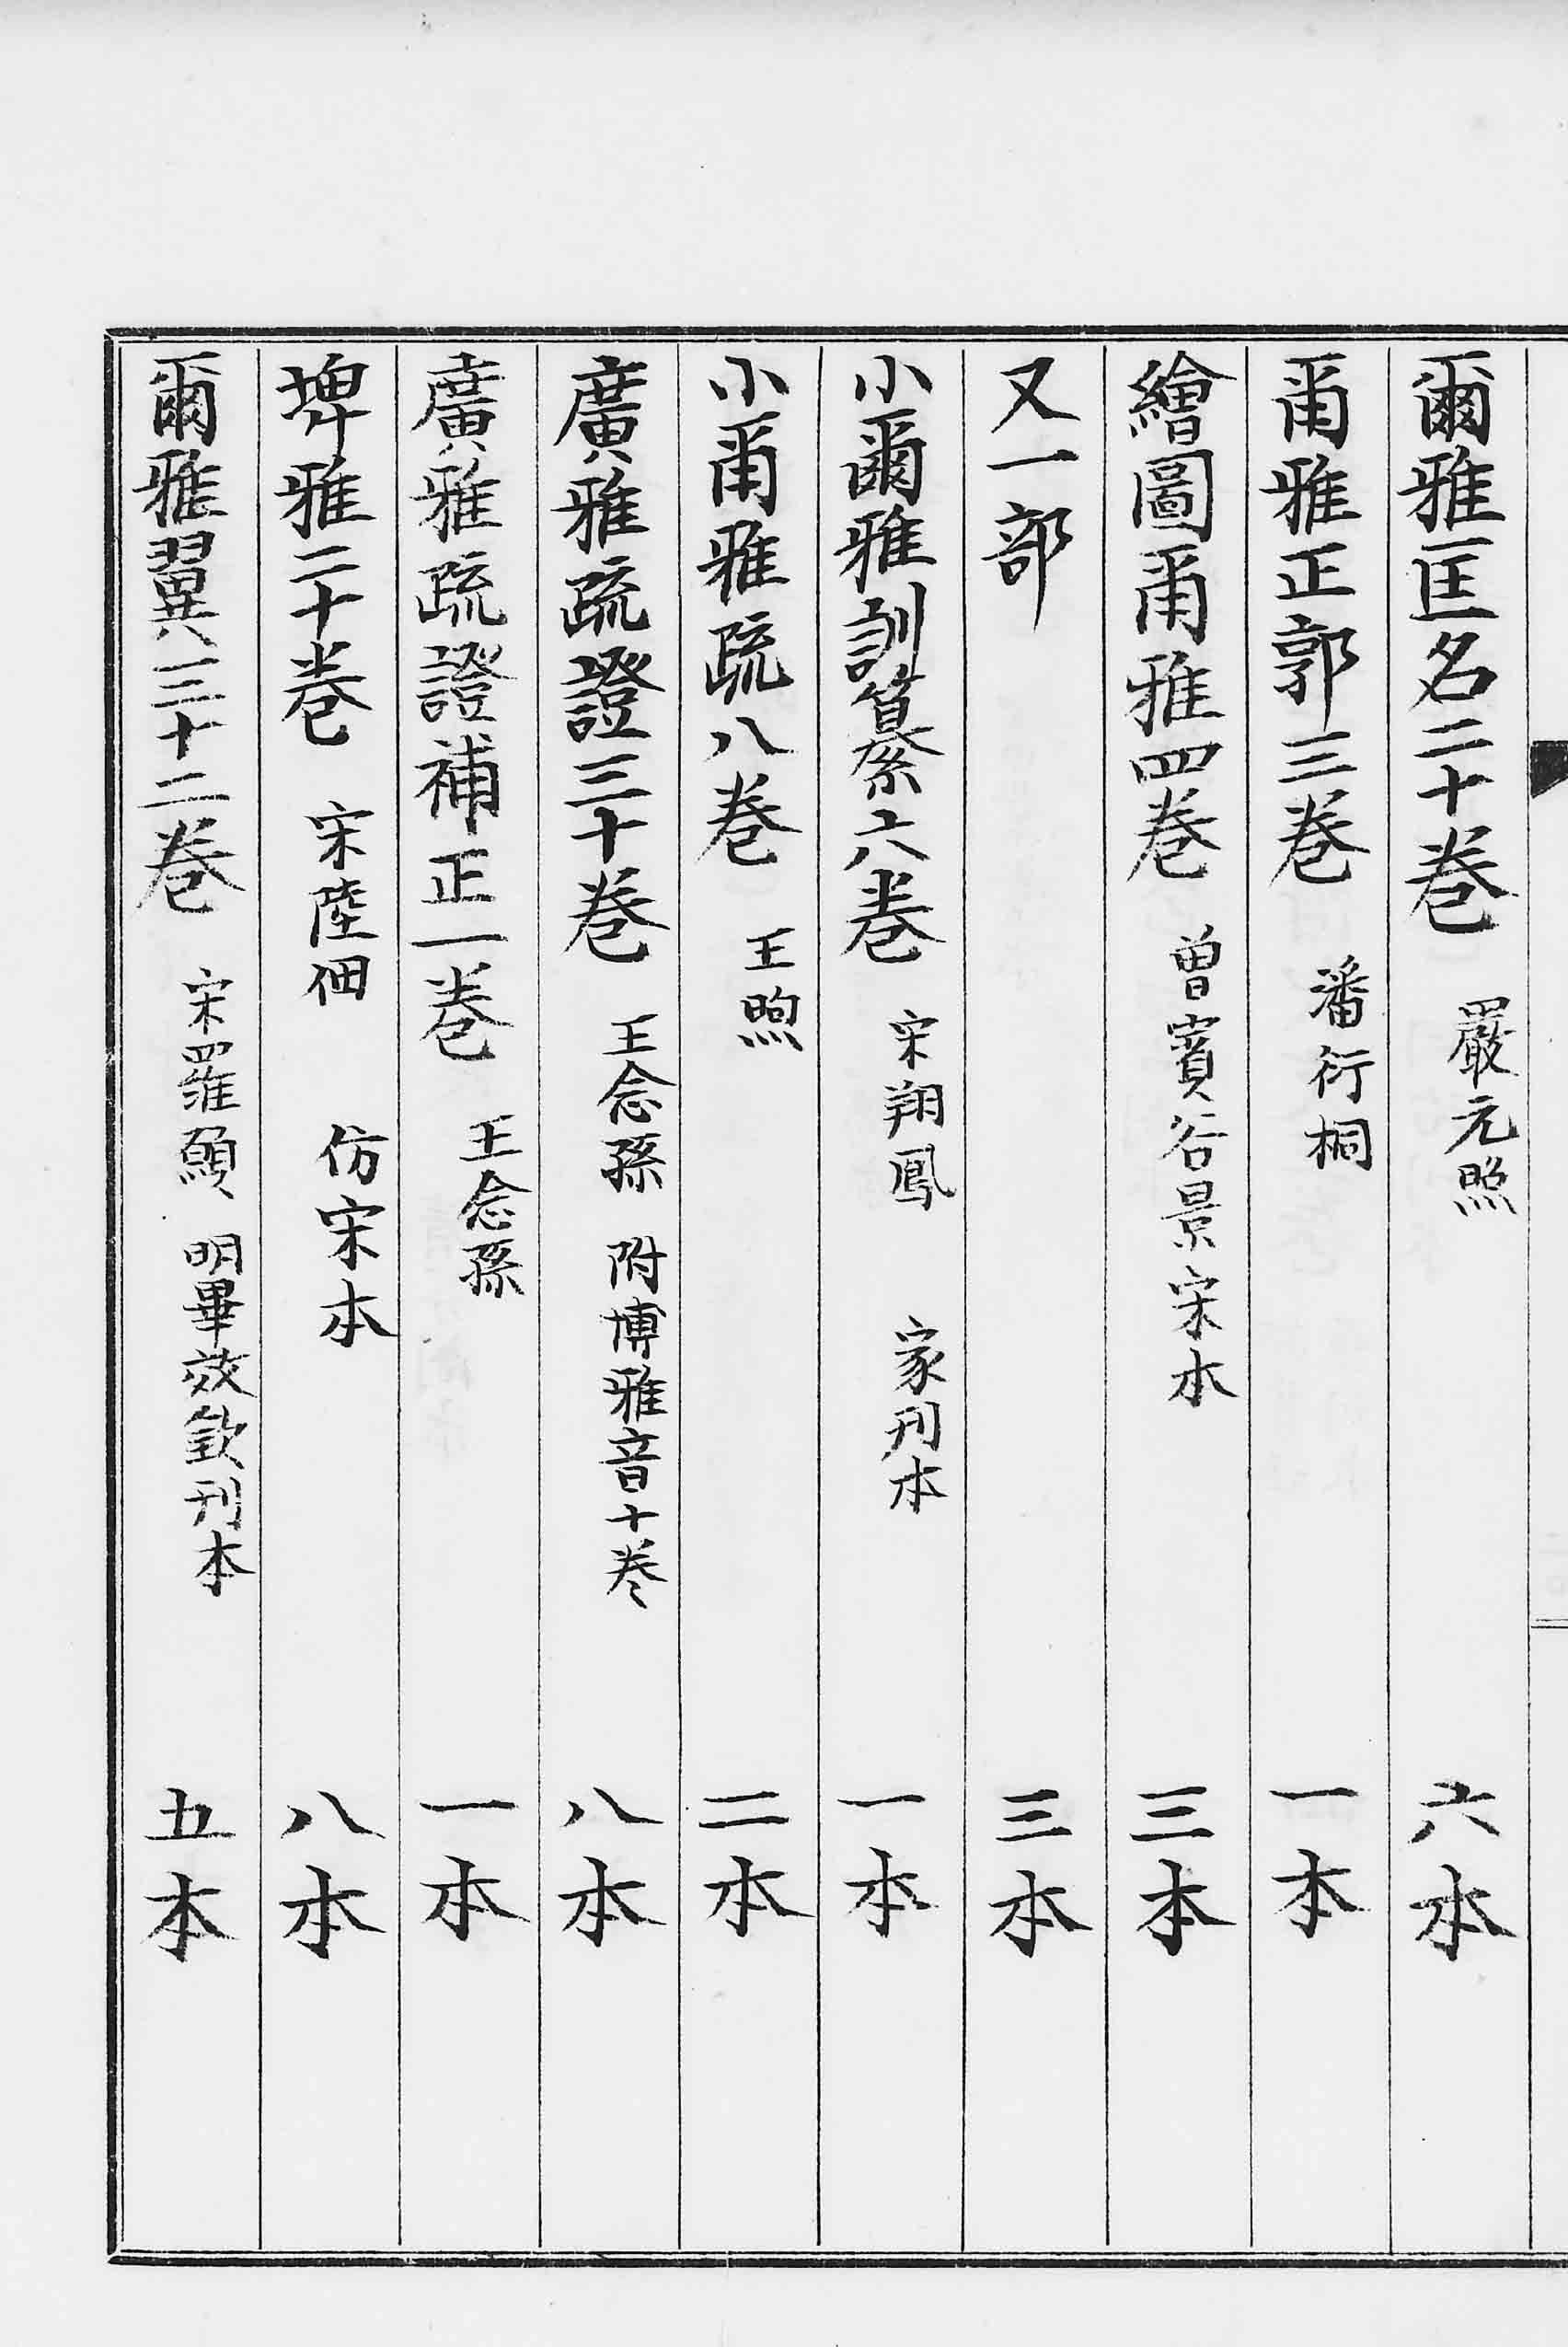 爾雅匡名二十卷 嚴元照 六本
爾雅正郭三卷 潘衍桐 一本
繪圖爾雅四卷 曾賓谷景宋本 三本
又一部 三本
小爾雅訓纂六卷 宋翔鳳 家刊本 一本
小爾雅疏八卷 王煦 二本
廣雅疏證三十卷 王念孫 附博雅音十卷 八本
廣雅疏證補正一卷 王念孫 一本
埤雅二十卷 宋陸佃 仿宋本 八本
爾雅翼三十二卷 宋羅願 明畢效欽刊本 五本